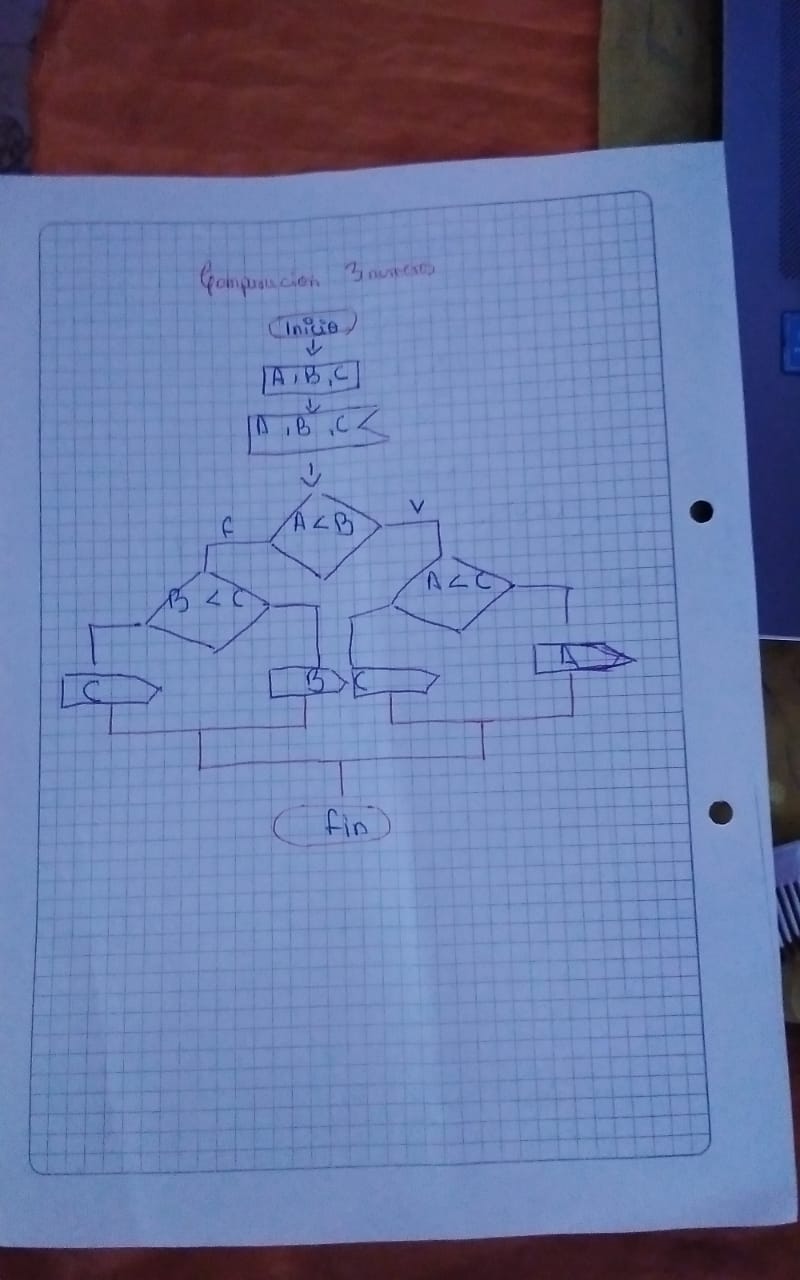 Comparación 3 numeros
Inicio
A, B, C
A, B, C
A < B
F
V
B < C
A < C
C
B
C
A
fin